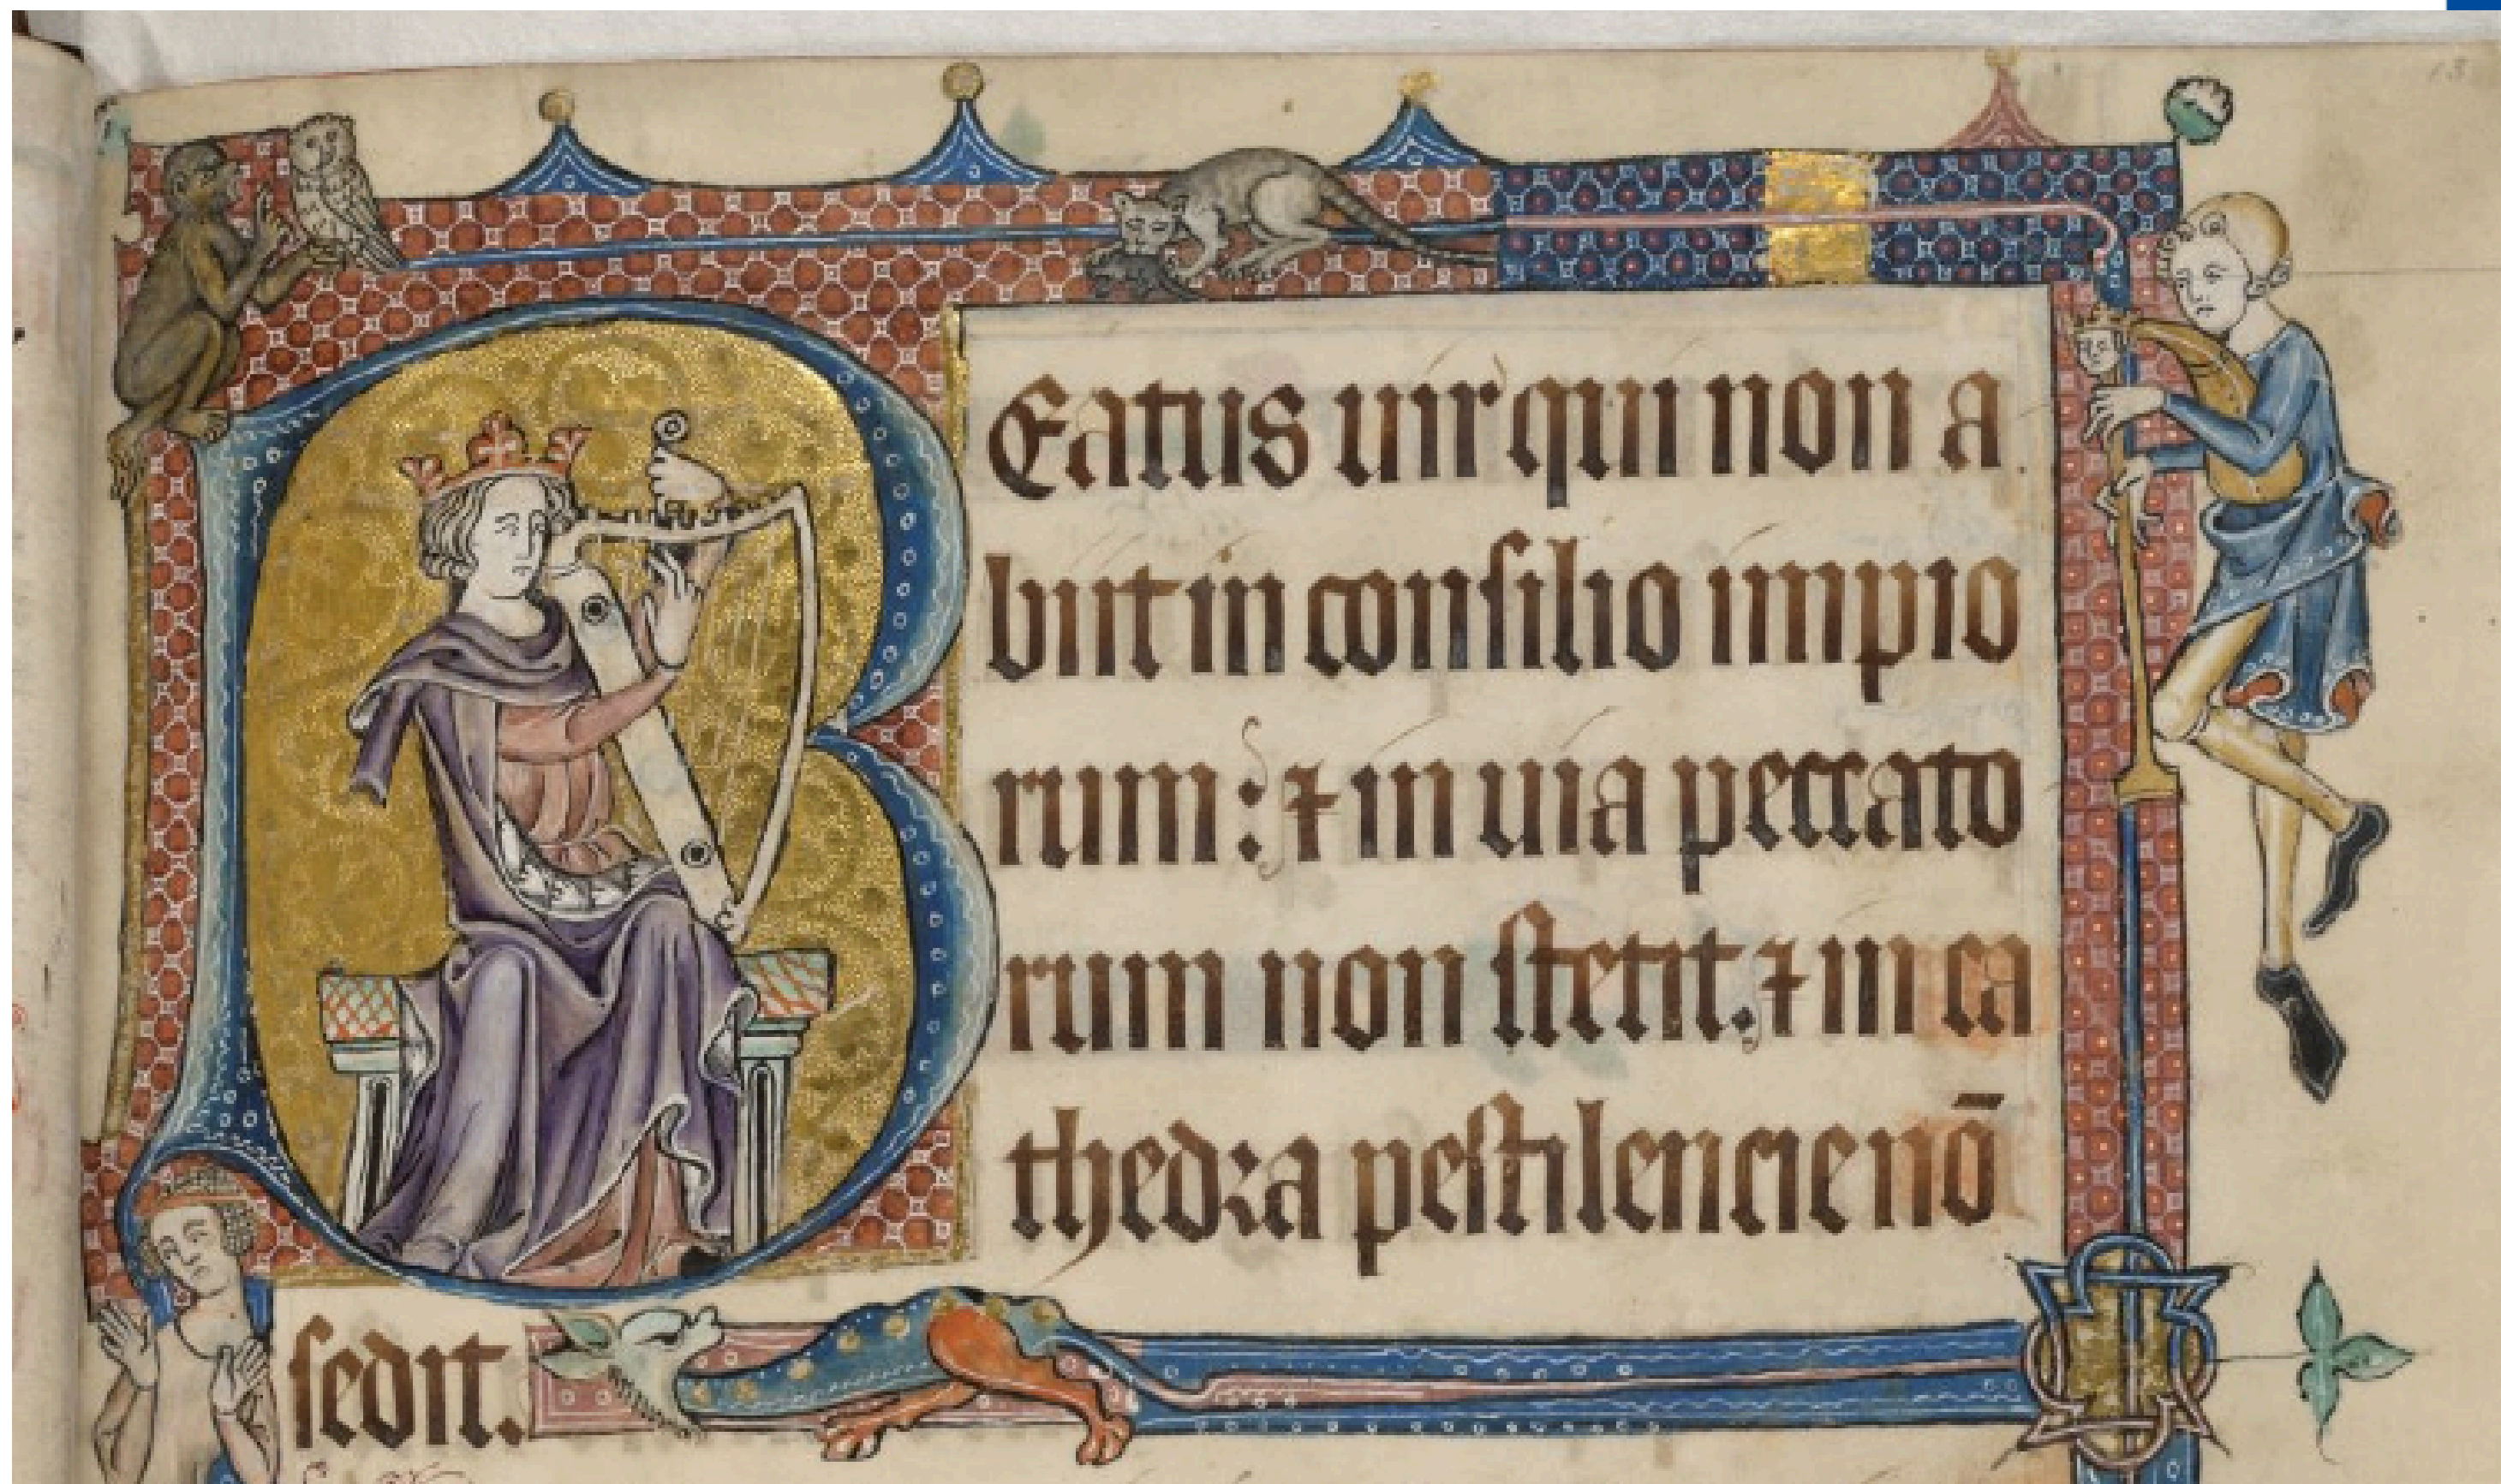 Beatus uir qui non a
biit in consilio impio
rum: ⁊ in uia peccato
rum non stetit: ⁊ in ca
thedra pestilencie nō
sedit.
13